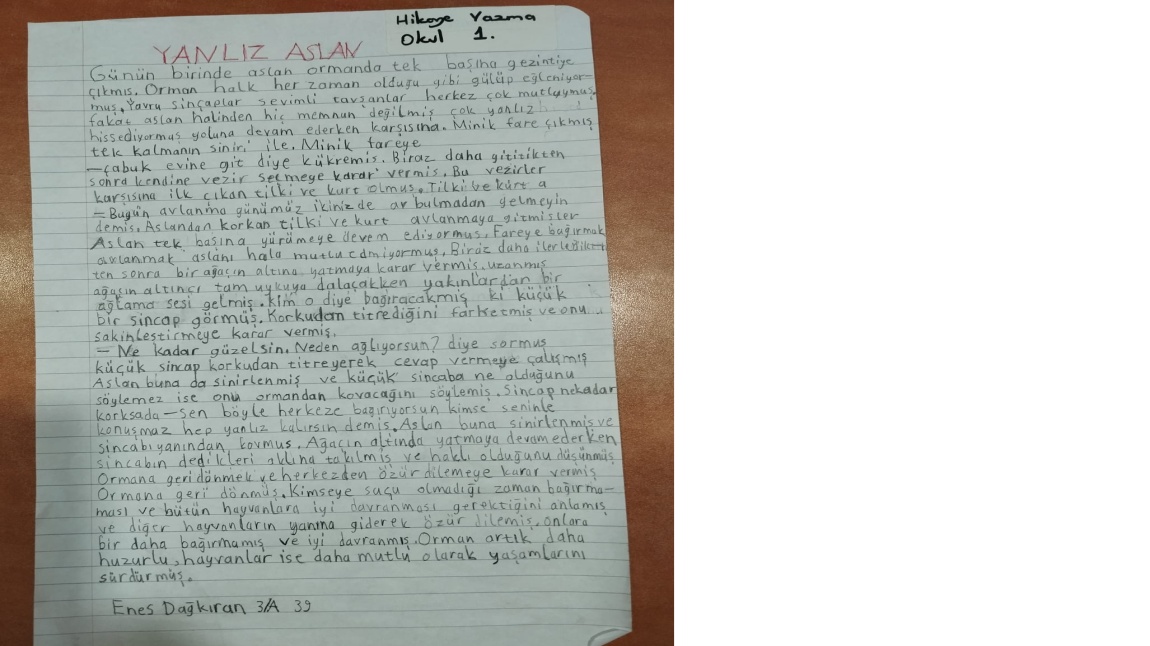 Hikaye Yazma
Okul 1.
YANLIZ ASLAN
Günün birinde aslan ormanda tek başına gezintiye
çıkmış. Orman halk her zaman olduğu gibi gülüp eğleniyor-
muş. Yavru sinçaplar sevimli tavşanlar herkez çok mutluymuş.
fakat aslan halinden hiç memnun değilmiş çok yanlız
hissediyormuş yoluna devam ederken karşısına. Minik fare çıkmış
tek kalmanın siniri ile. Minik fareye
—çabuk evine git diye kükremiş. Biraz daha gitizikten
sonra kendine vezir seçmeye karar vermiş. Bu vezirler
karşısına ilk çıkan tilki ve kurt olmuş. Tilki ve kurt a
— Bugün avlanma günümüz ikinizde av bulmadan gelmeyin
demiş. Aslandan korkan tilki ve kurt avlanmaya gitmişler
Aslan tek başına yürümeye devem ediyormuş. Fareye bağırmak
avlanmak aslanı hala mutlu etmiyormuş. Biraz daha ilerledikt
ten sonra bir ağaçın altına yatmaya karar vermiş. uzanmış
ağaçın altınçı tam uykuya dalaçakken yakınlardan bir
ağlama sesi gelmiş. kim o diye bağıracakmiş ki küçük
bir sincap görmüş. Korkudan titrediğini farketmiş ve onu
sakinleştirmeye karar vermiş.
— Ne kadar güzelsin. Neden ağlıyorsun? diye sormuş
küçük sincap korkudan titreyerek cevap vermeye çalışmış
Aslan buna da sinirlenmiş ve küçük sincaba ne olduğunu
söylemez ise onu ormandan kovacağını söylemiş. Sincap nekadar
korksada — Sen böyle herkeze bağırıyorsun kimse seninle
konuşmaz hep yanlız kalırsın demiş. Aslan buna sinirlenmiş ve
sincabı yanından kovmuş. Ağaçın altında yatmaya devam ederken
sincabın dedikleri aklına takılmış ve haklı olduğunu düşünmüş
Ormana geri dönmek ve herkezden özür dilemeye karar vermiş
Ormana geri dönmüş. Kimseye suçu olmadığı zaman bağırma-
ması ve bütün hayvanlara iyi davranması gerektiğini anlamış
ve diğer hayvanların yanına giderek özür dilemiş. onlara
bir daha bağırmamış ve iyi davranmış. Orman artık daha
huzurlu, hayvanlar ise daha mutlu olarak yaşamlarını
sürdürmüş.
Enes Dağkıran 3/A 39